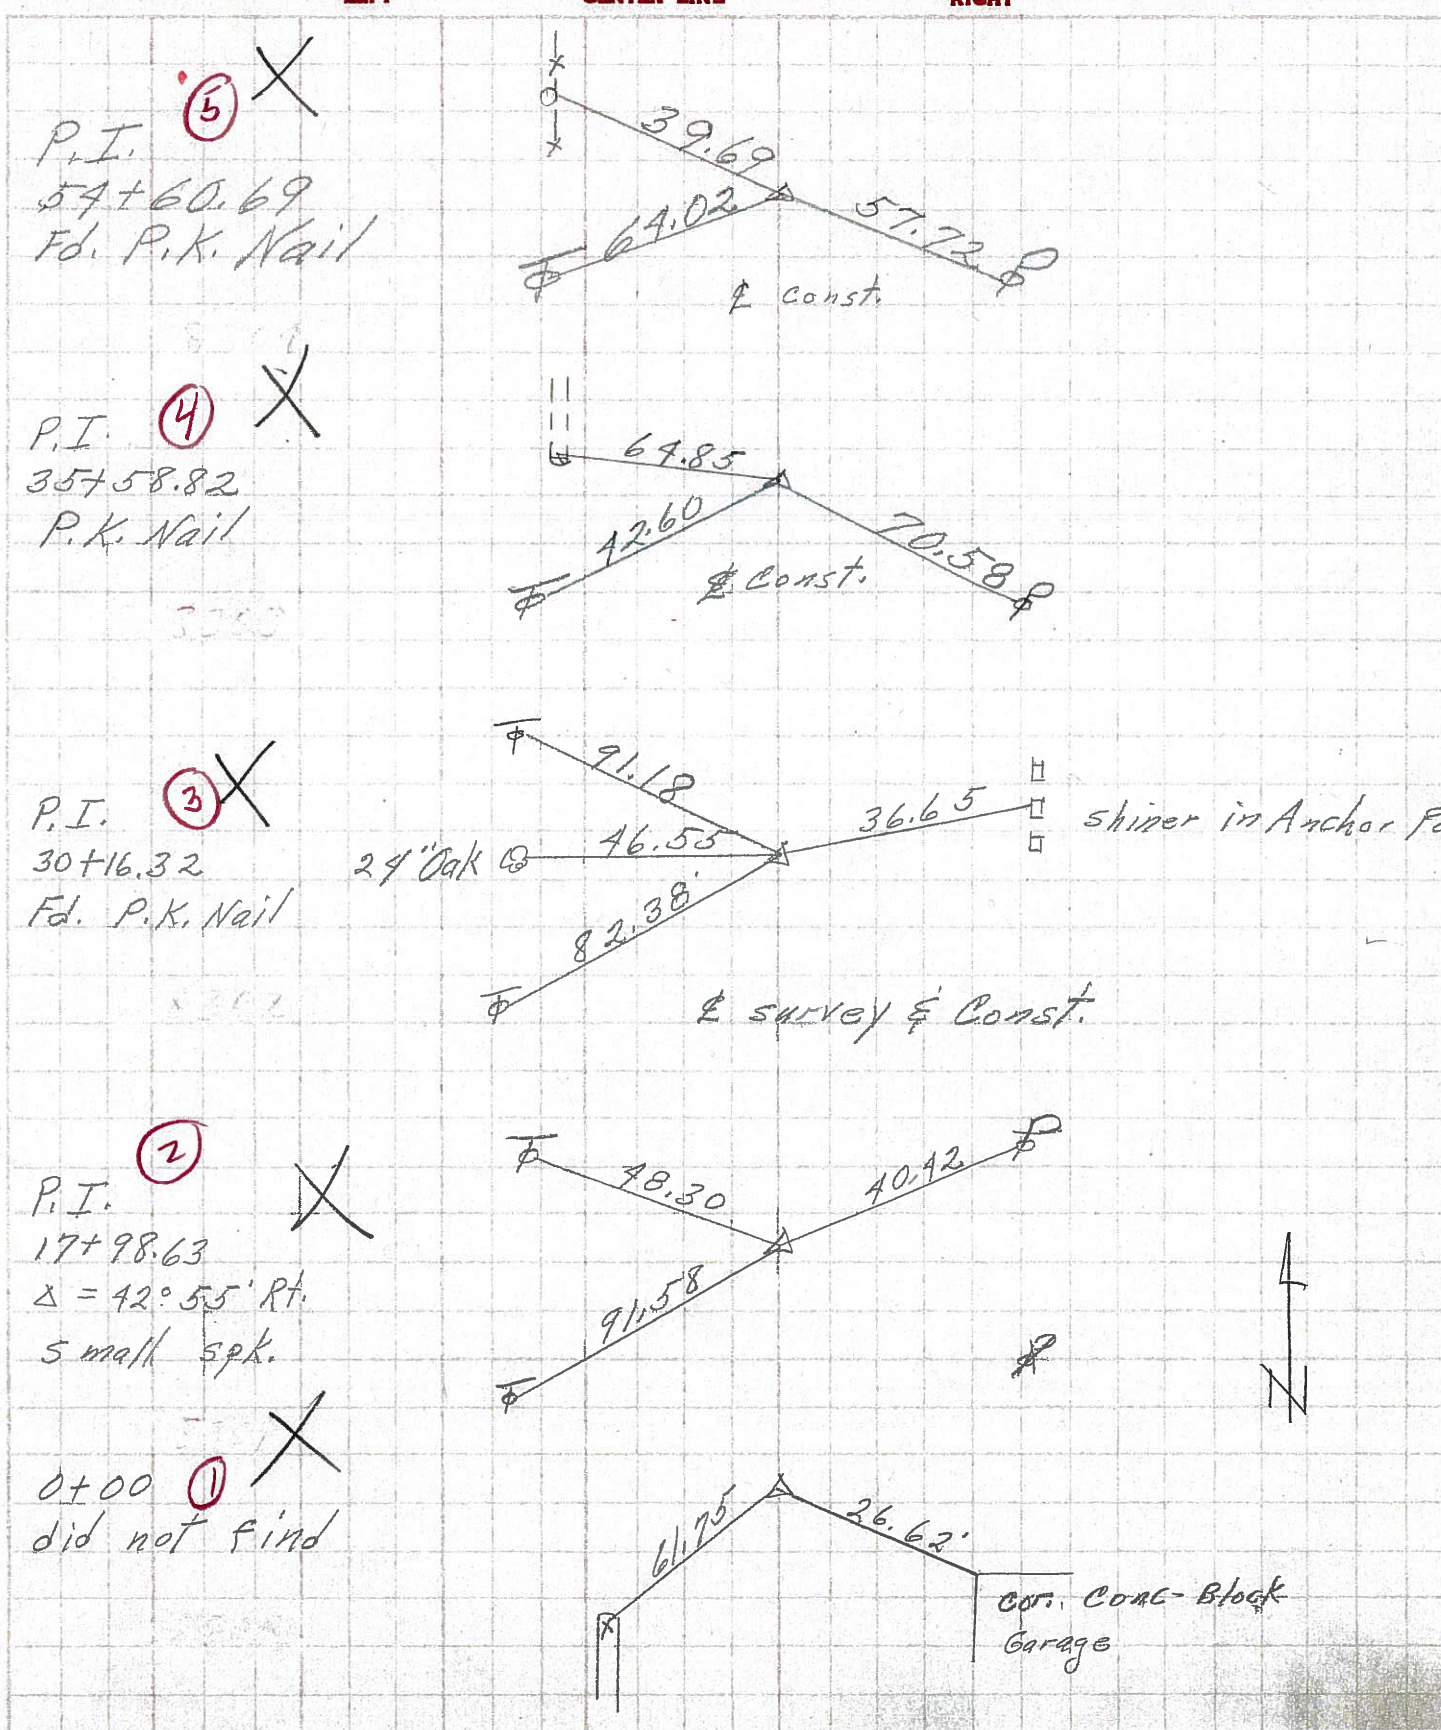 LEFT CENTER LINE RIGHT
5
P.I.
54+60.69
Fd. P.K. Nail
39.69
64.02
57.72
℄ const.
4
P.I.
35+58.82
P.K. Nail
64.85
42.60
70.58
℄ Const.
3
P.I.
30+16.32
Fd. P.K. Nail
91.18
46.55
24" Oak
82.38'
36.65
shiner in Anchor Po
℄ survey & Const.
2
P.I.
17+98.63
Δ = 42° 55' Rt.
small spk.
48.30
40.42
91.58
N
0+00 1
did not find
61.75
26.62'
cor. Conc-Block
Garage